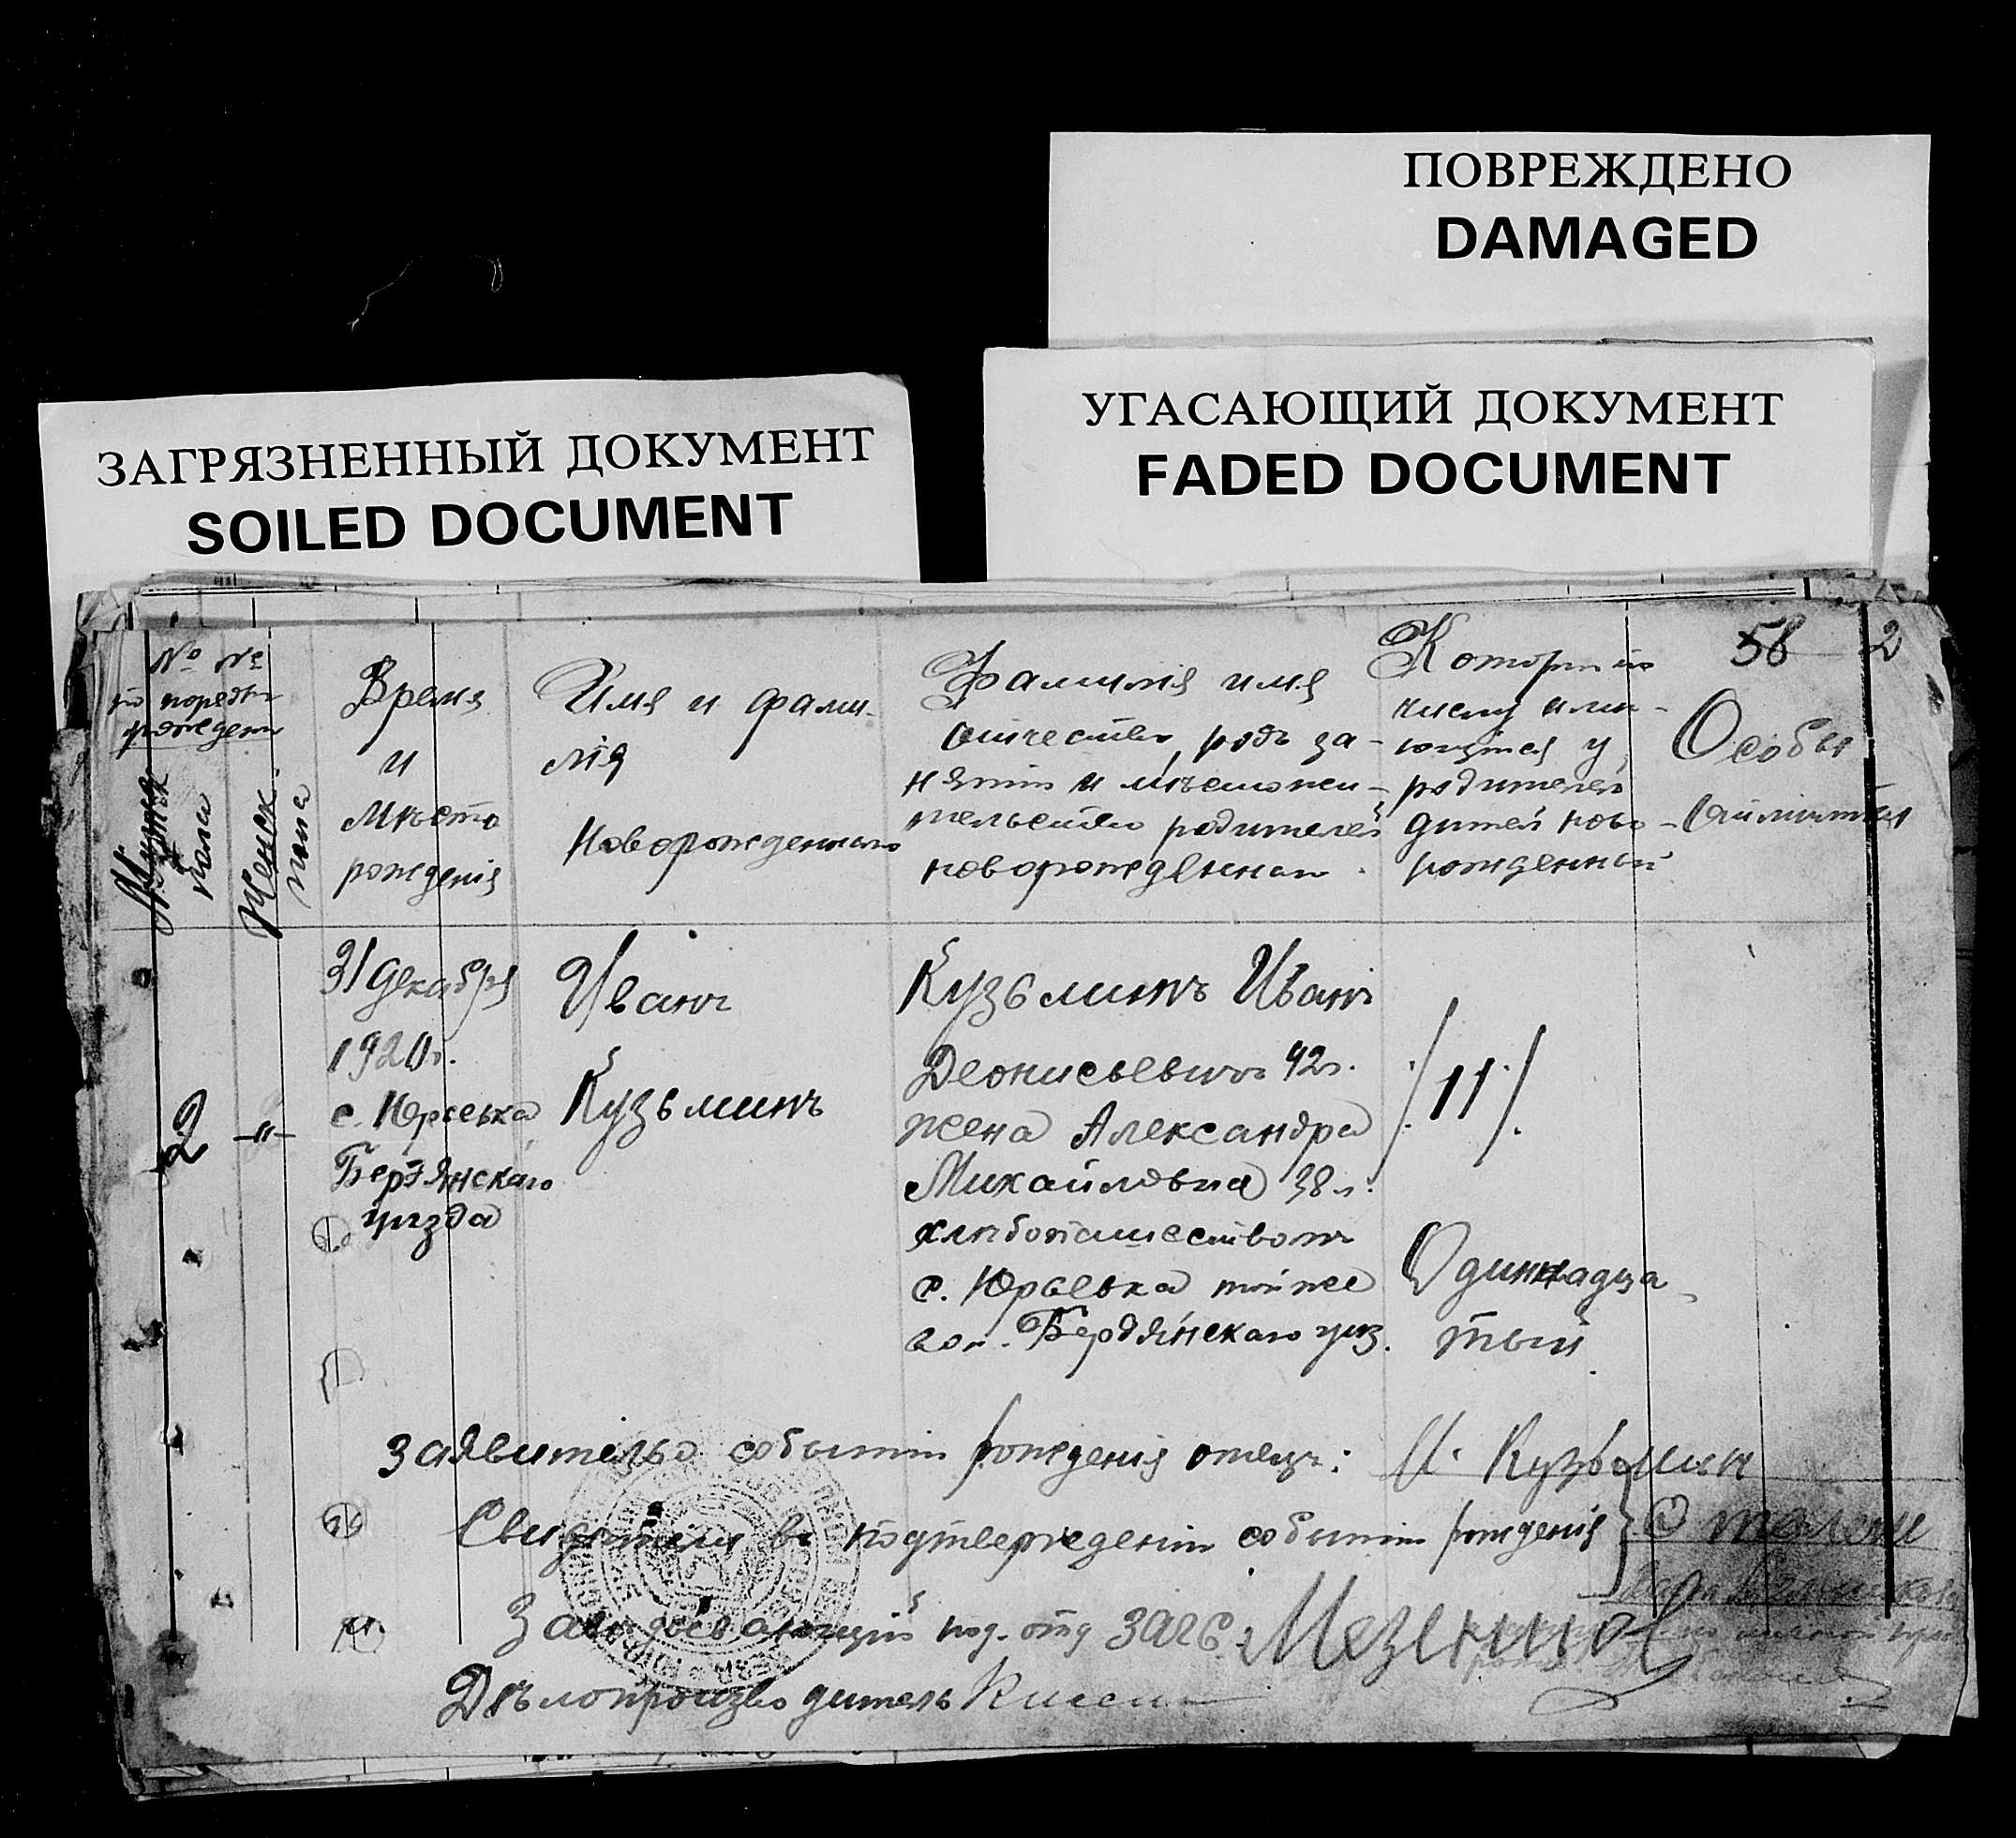 ПОВРЕЖДЕНО
DAMAGED
УГАСАЮЩИЙ ДОКУМЕНТ
FADED DOCUMENT
ЗАГРЯЗНЕННЫЙ ДОКУМЕНТ
SOILED DOCUMENT
58 2
№ №
по порядку
рождения
Мужск.
пола
Женск.
пола
Время
и
мѣсто
рожденія
Имя и фами-
лія
новорожденнаго
Фамилія имя
отчество, родъ за-
нятія и мѣстожи-
тельство родителей
новорожденнаго
Который по
числу имѣ-
ющихся у
родителей
детей ново-
рожденный
Особыя
отмѣтки
2
-"-
31 декабря
1920г.
с. Юрьевка
Бердянскаго
уѣзда
Иванъ
Кузьминъ
Кузьминъ Иванъ
Деонисьевичъ 42г.
жена Александра
Михайловна 38 л.
хлѣбопашествомъ
с. Юрьевка той же
вол. Бердянскаго уѣз.
/11/
Одиннадца-
тый
Заявитель о событіи рожденія отецъ: И. Кузьмин
Свидѣтели въ подтвержденіи событія рожденія
Заведывающій под. отд ЗАГС.
Дѣлопроизводитель